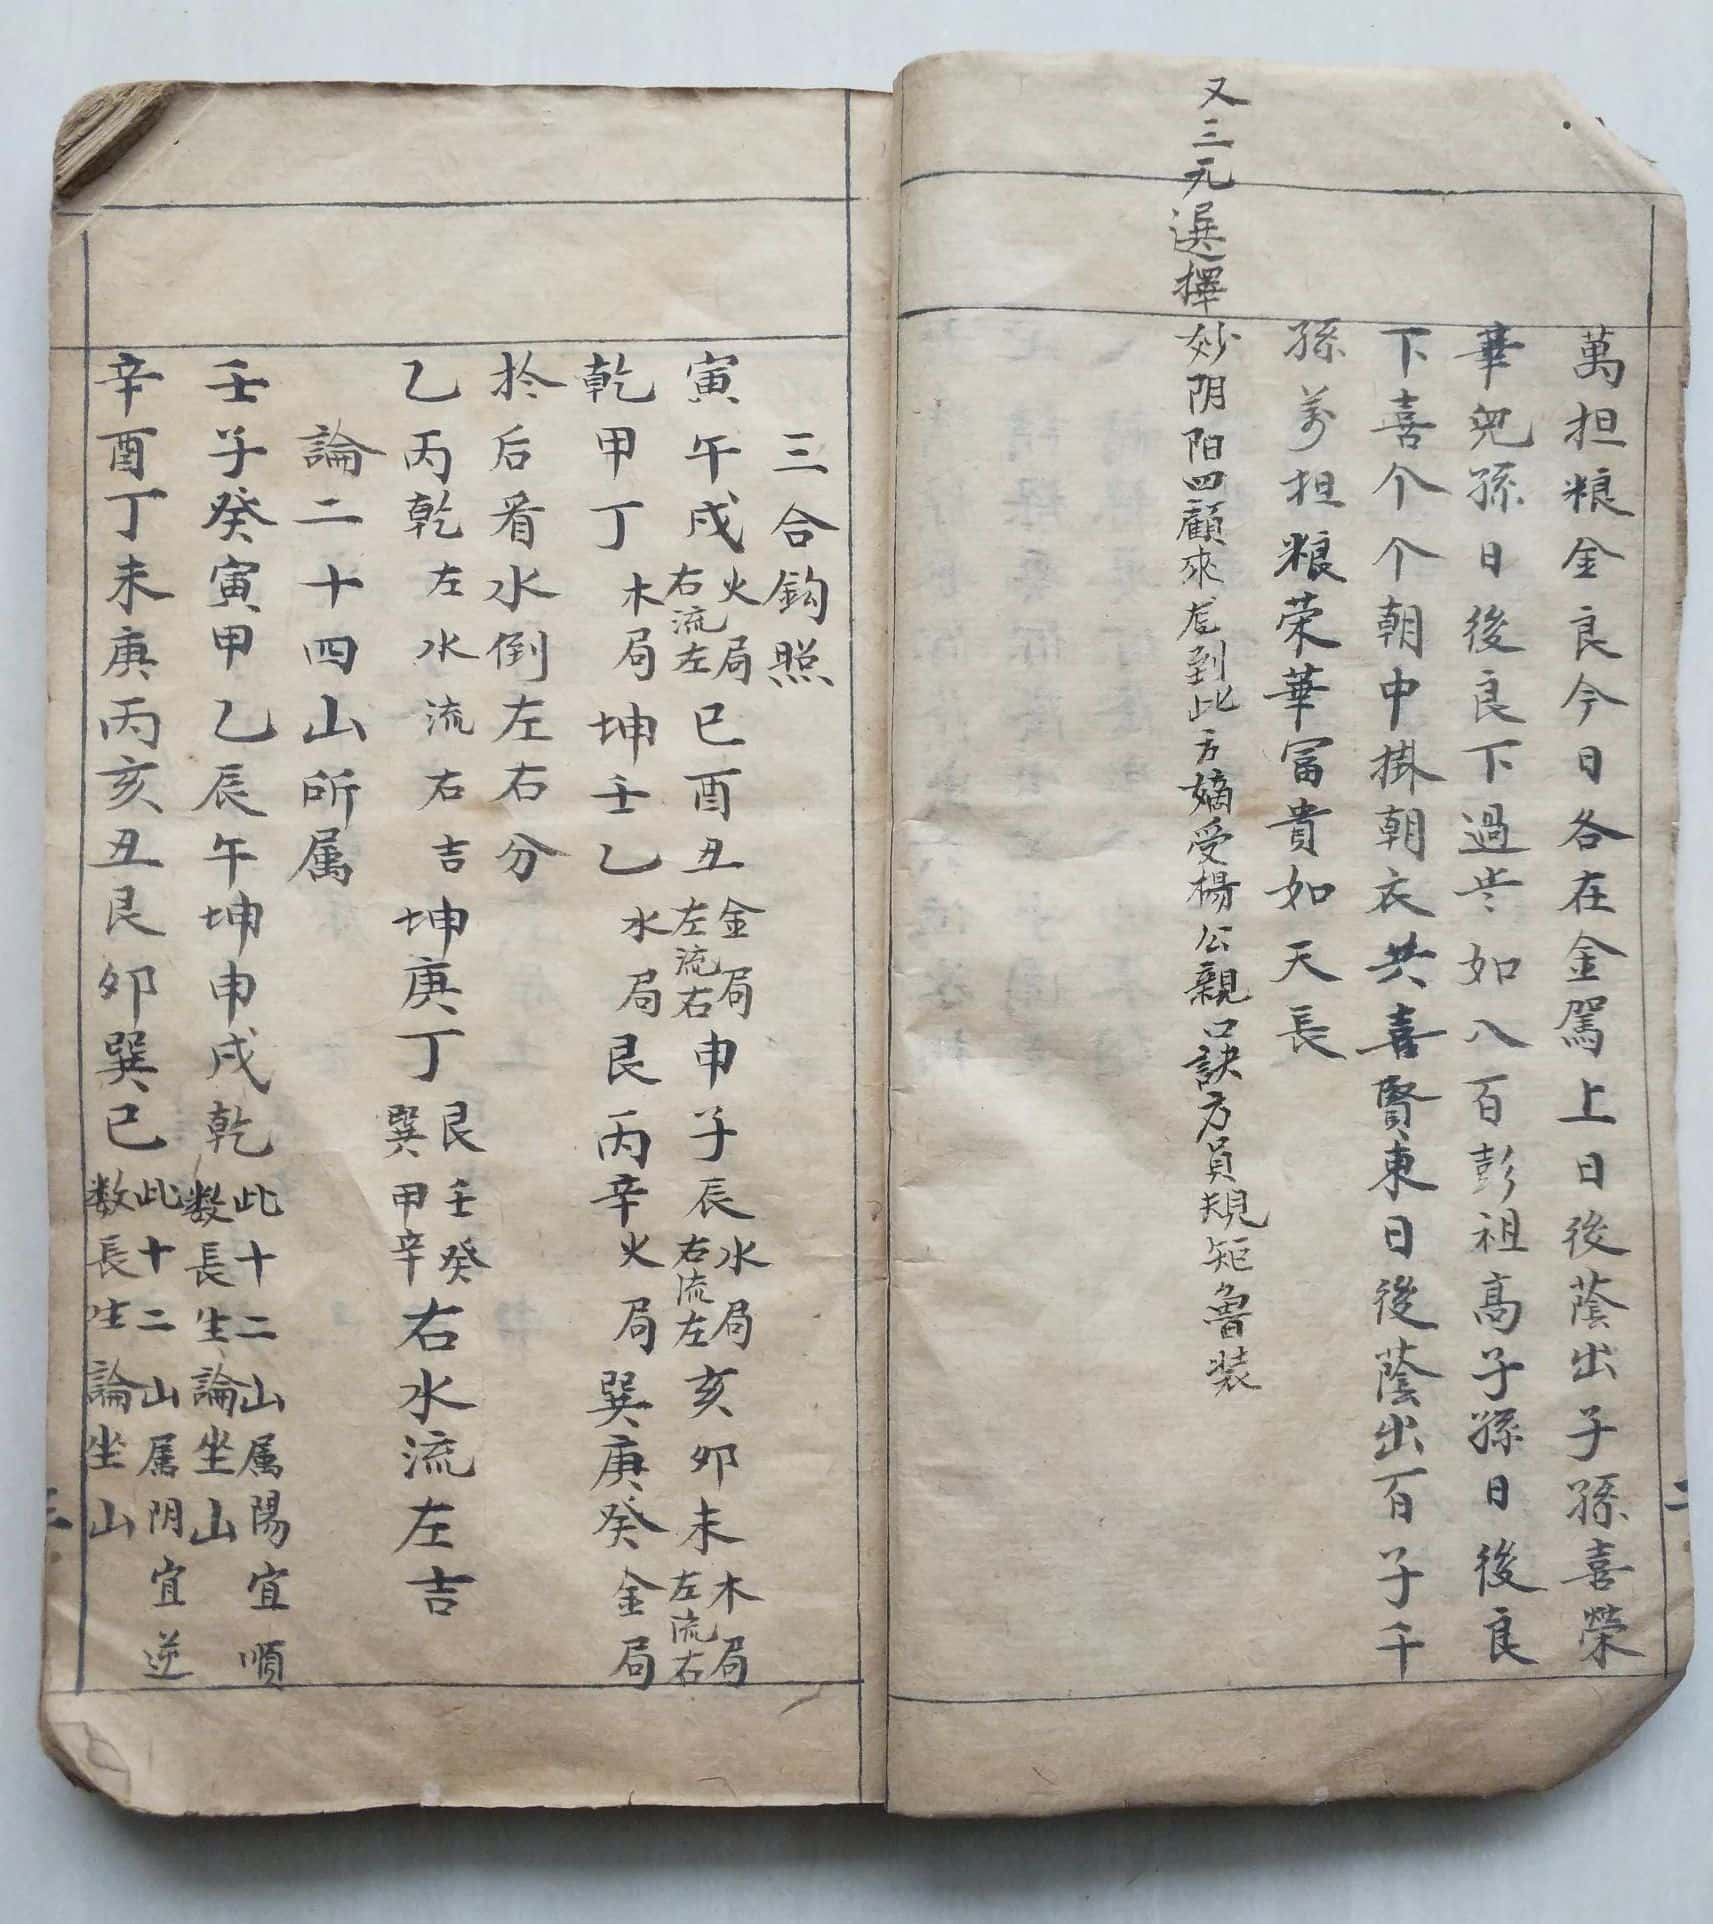 萬担粮金良今日各在金駕上日後蔭出子孫喜榮
華兒孫日後良下過岁如八百彭祖高子孫日後良
下喜个个朝中掛朝衣共喜賢東日後蔭出百子千
孫萬担粮荣華冨貴如天長
又三元選擇妙阴阳四顧來龙到此方嫡受楊公親口訣方員規矩魯装
二
三合鈎照
寅午戍火局右流左巳酉丑金局左流右申子辰水局右流左亥卯未木局左流右
乾甲丁木局坤壬乙水局艮丙辛火局巽庚癸金局
扵后看水倒左右分
乙丙乾左水流右吉坤庚丁艮壬癸巽甲辛右水流左吉
論二十四山所属
壬子癸寅甲乙辰午坤申戍乾此十二山属陽宜順数長生論坐山
辛酉丁未庚丙亥丑艮卯巽巳此十二山属阴宜逆数長生論坐山
三